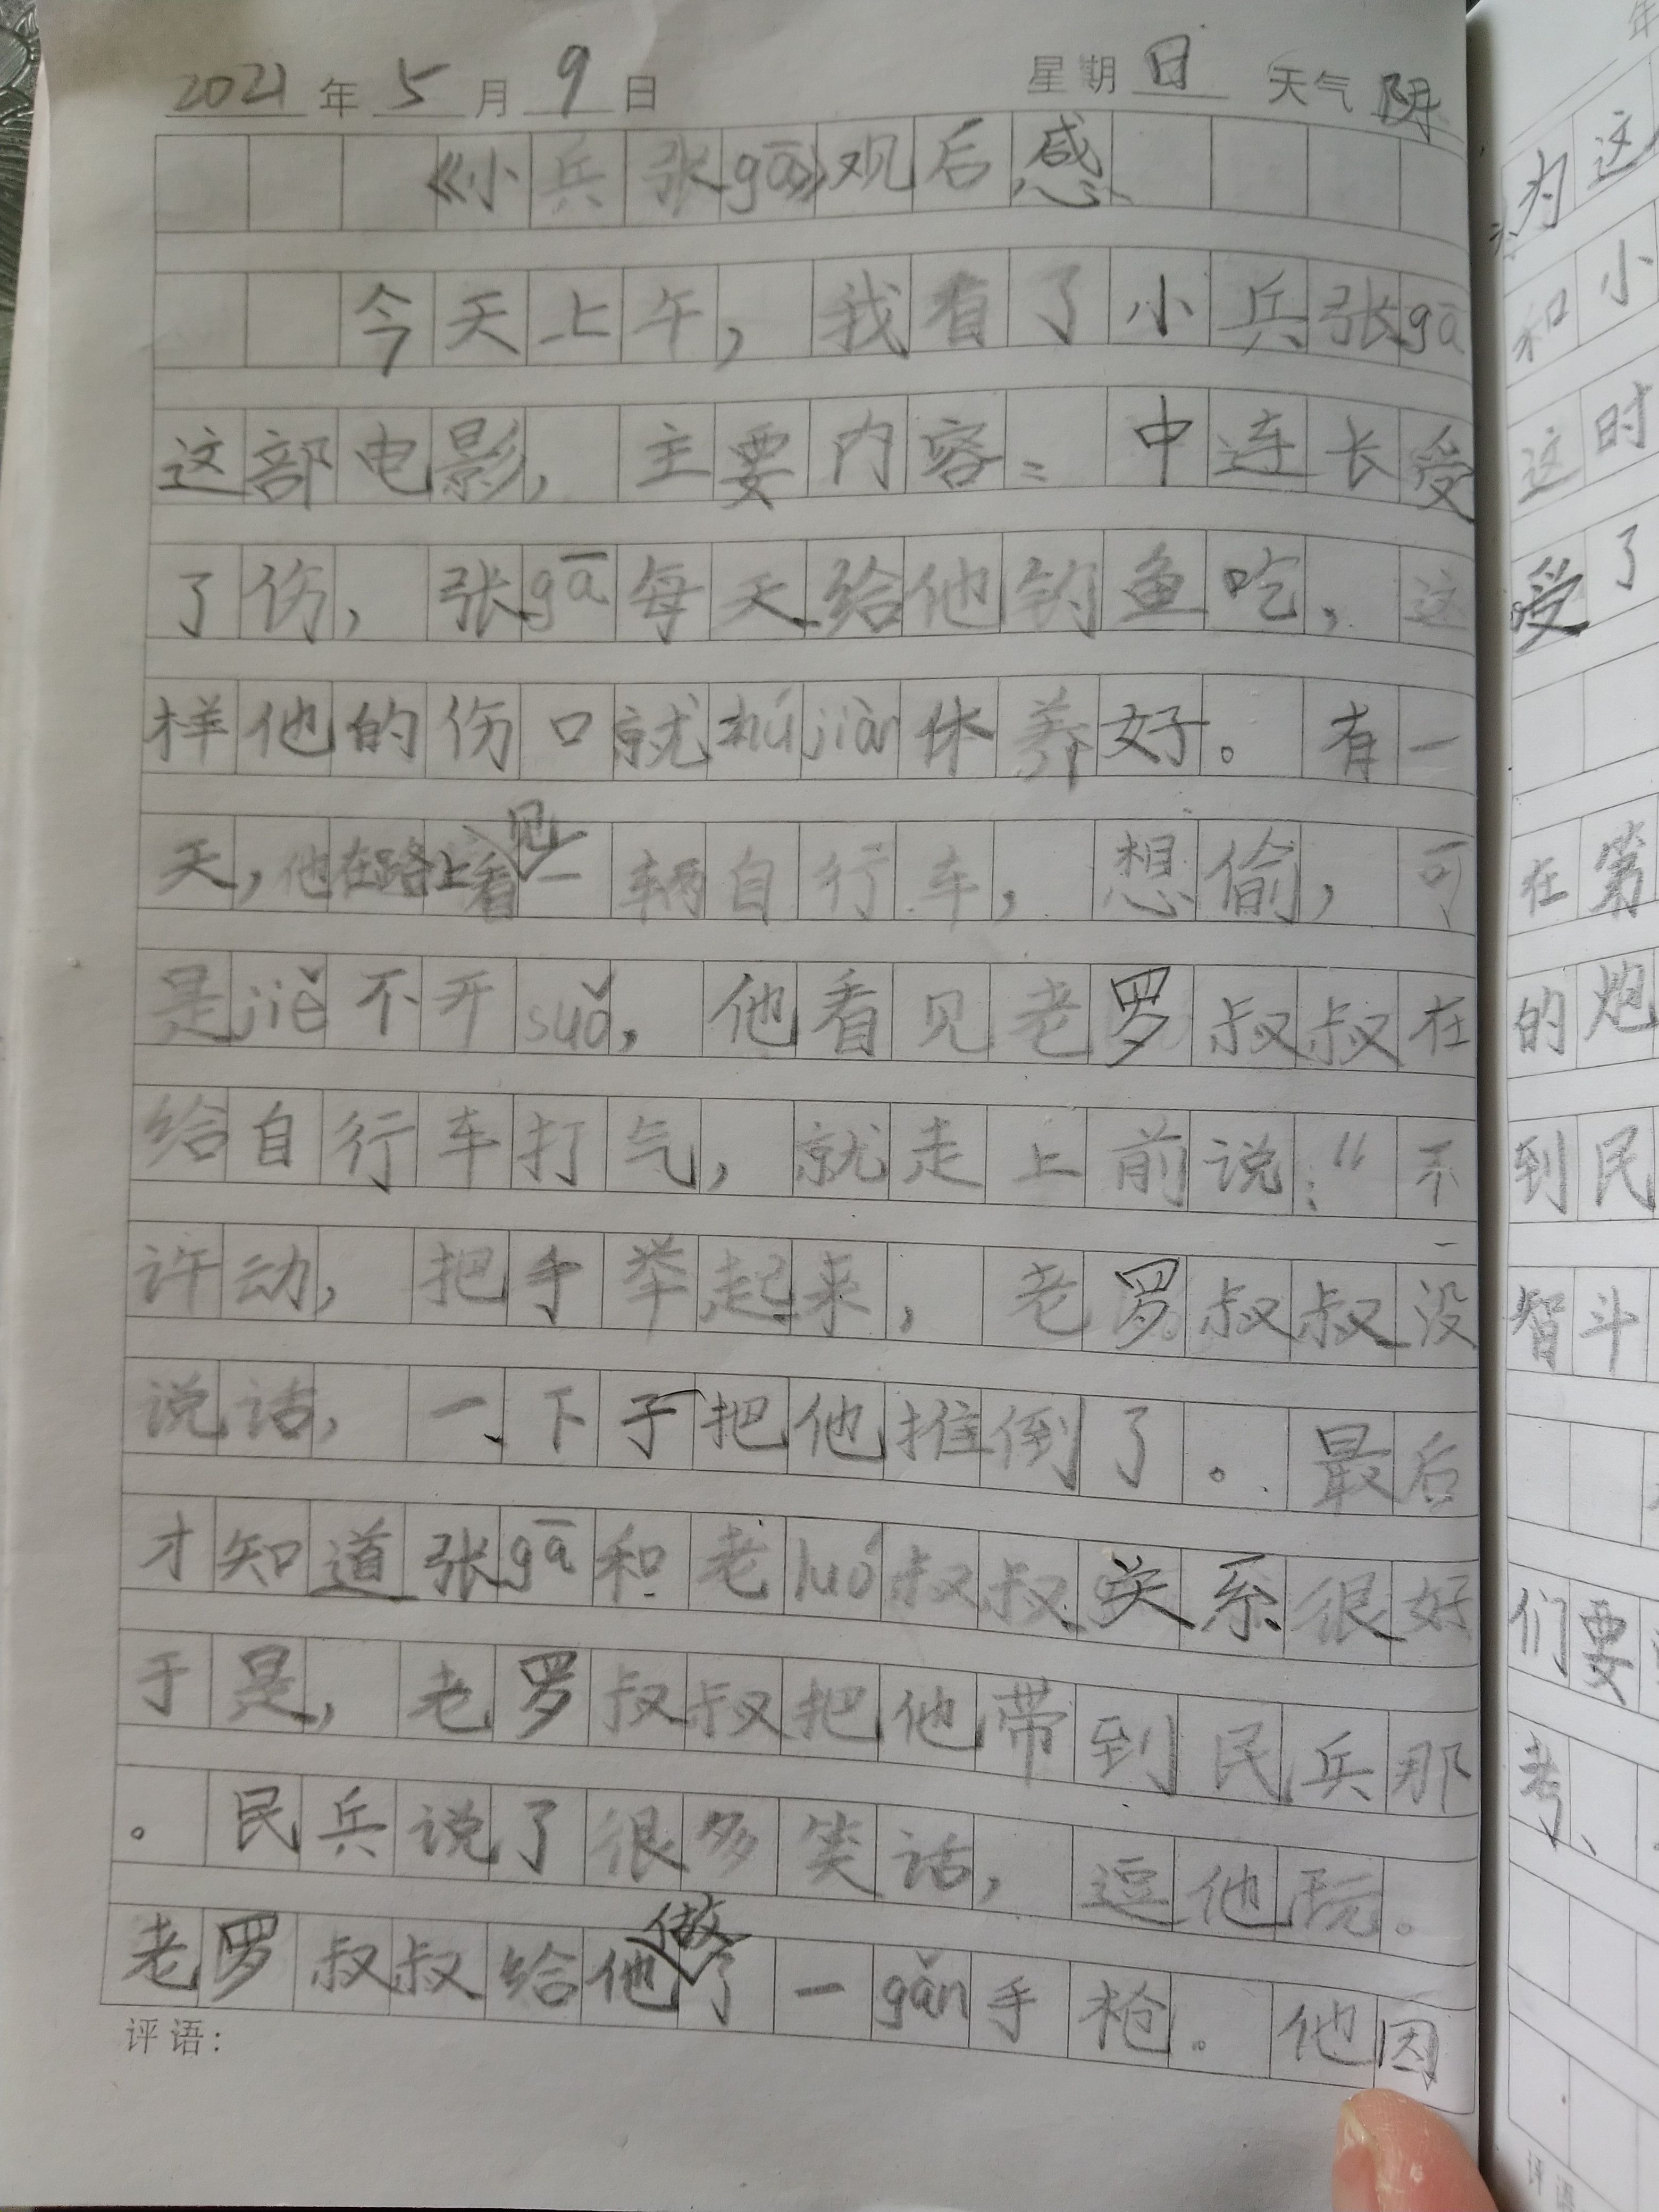 2021年5月9日 星期日 天气阴
《小兵张gā》观后感
今天上午，我看了小兵张gā
这部电影，主要内容：中连长受
了伤，张gā每天给他钓鱼吃，这
样他的伤口就zhújiàn休养好。有一
天，他在路上看见一辆自行车，想偷，可
是jiě不开suǒ，他看见老罗叔叔在
给自行车打气，就走上前说：“不
许动，把手举起来，老罗叔叔没
说话，一下子把他推倒了。最后
才知道张gā和老luó叔叔关系很好
于是，老罗叔叔把他带到民兵那
。民兵说了很多笑话，逗他玩。
老罗叔叔给他做了一gǎn手枪。他因
评语：
为这
和小
这时
受了
在第
的炮
到民
智斗
们要
考、